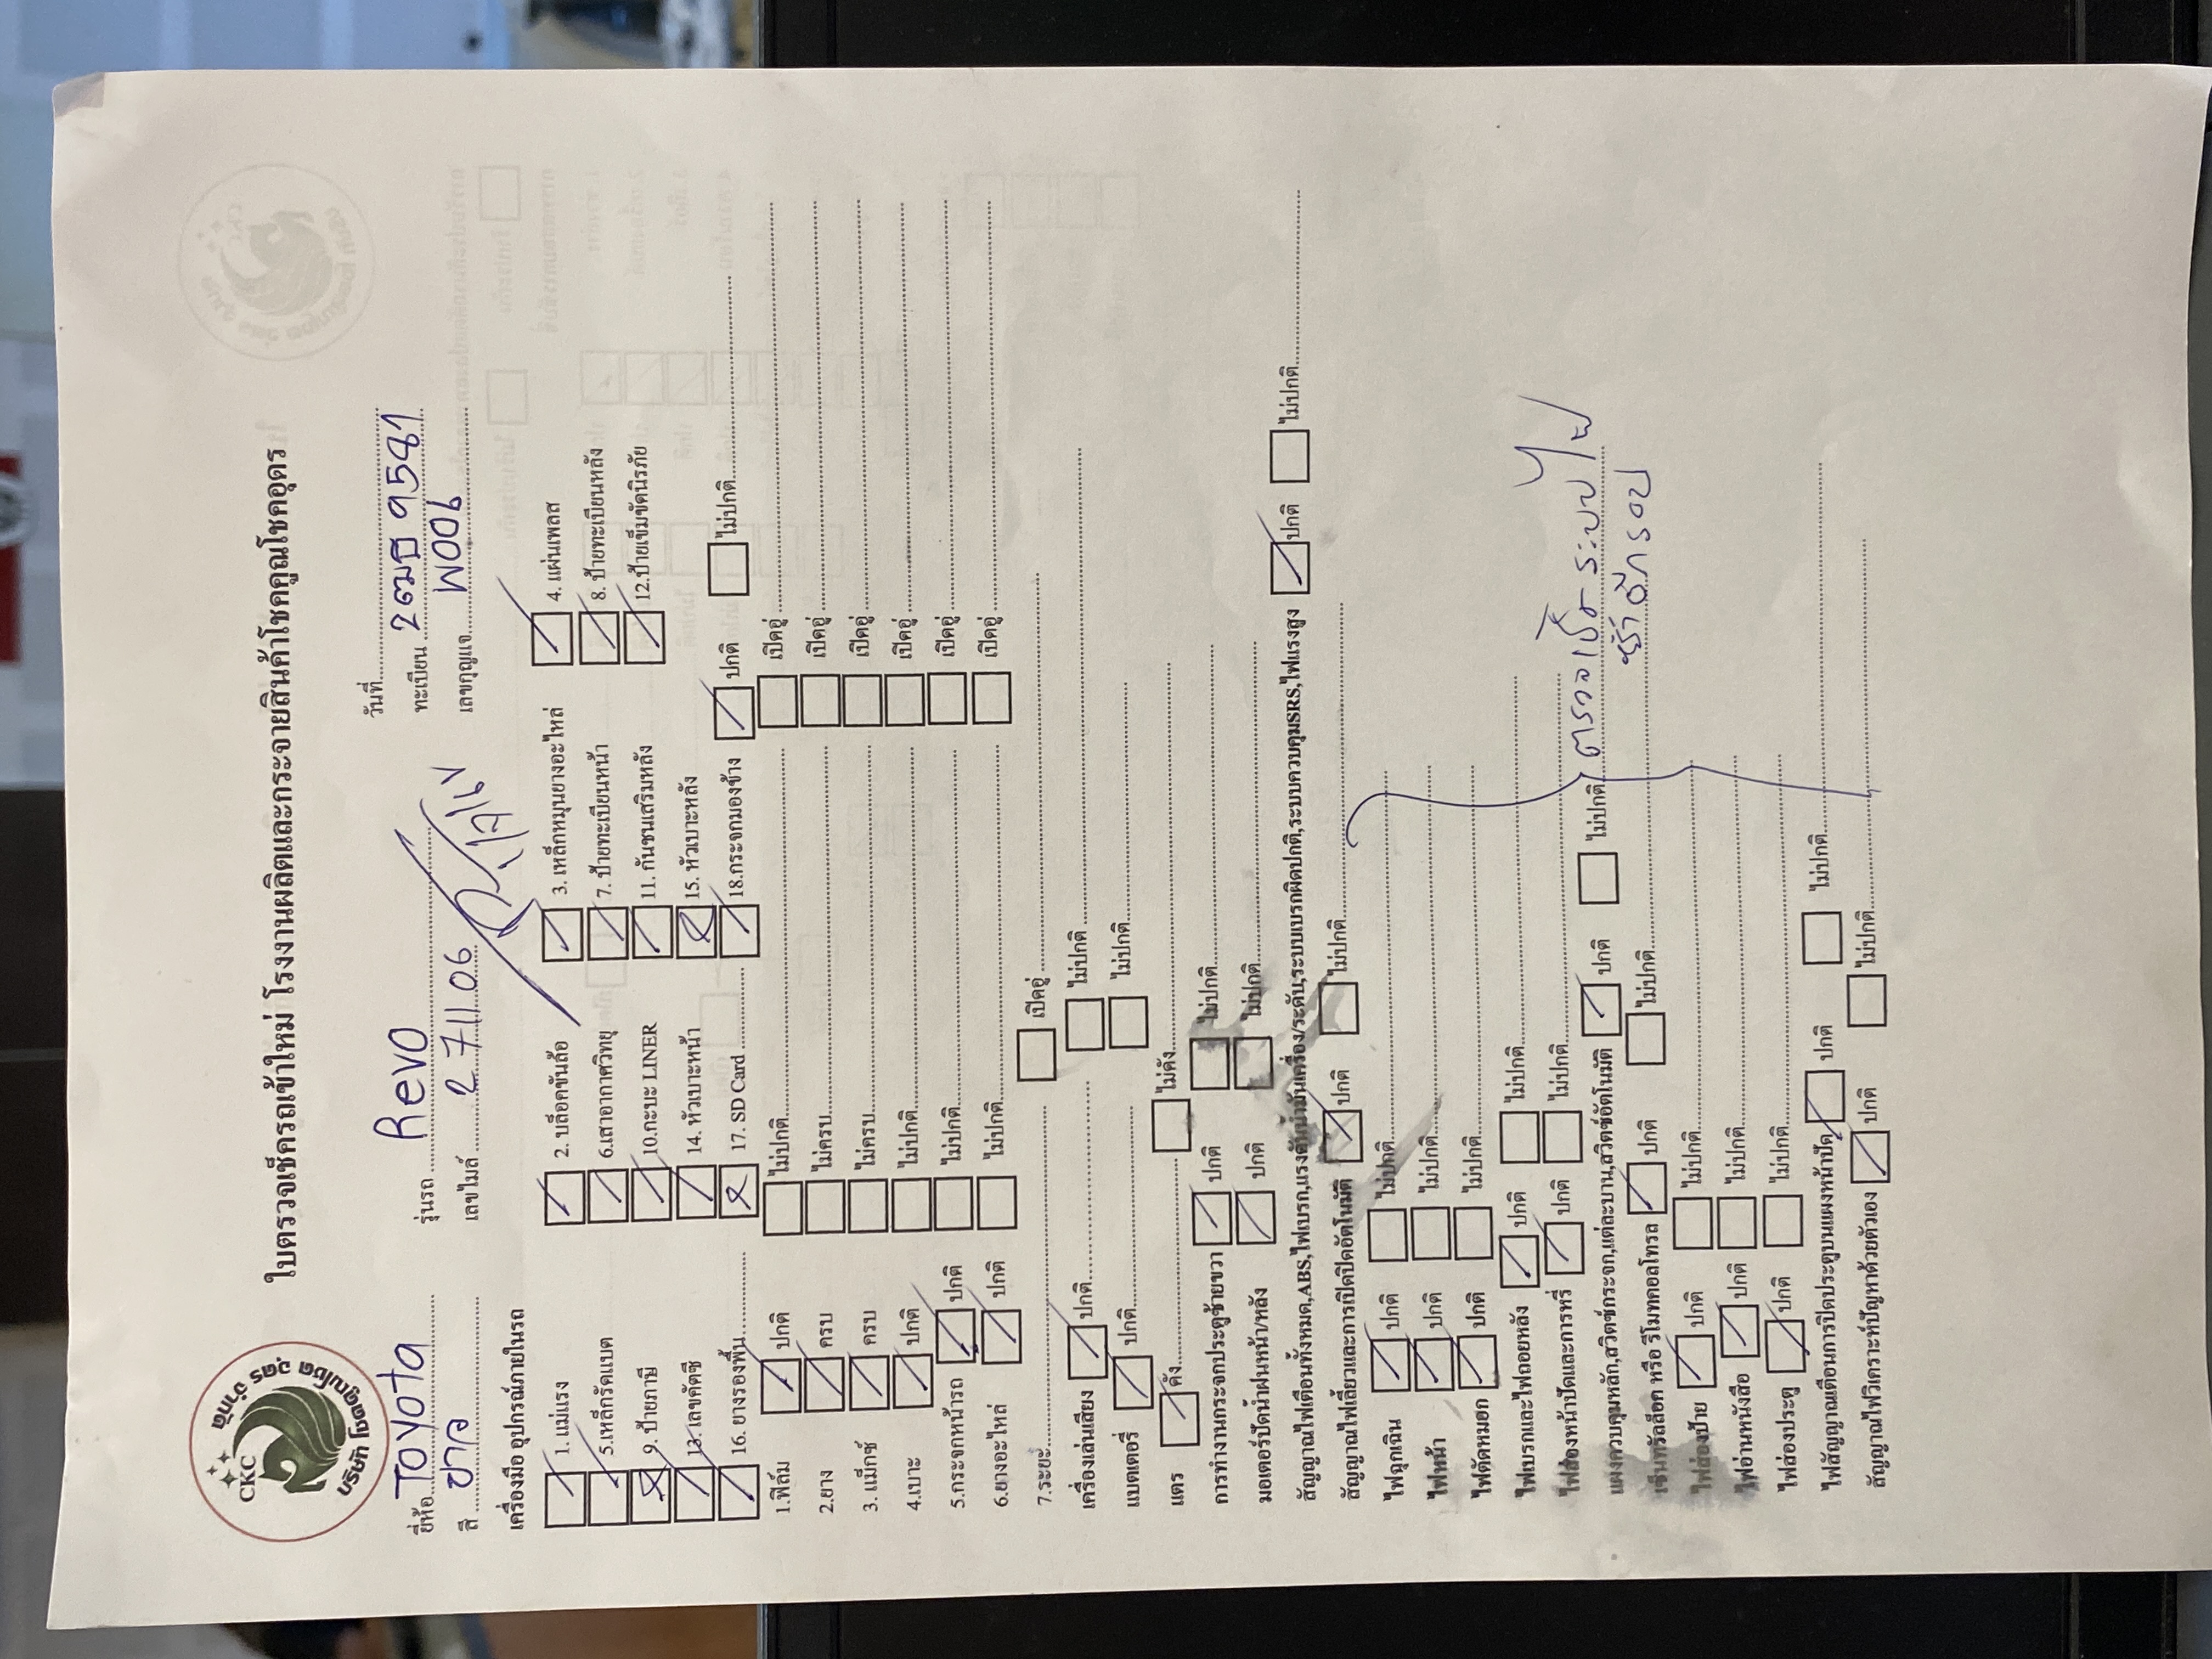 CKC
บริษัท โชคคูณโชค อุดร จำกัด
ใบตรวจเช็ครถเข้าใหม่ โรงงานผลิตและกระจายสินค้าโชคคูณโชคอุดร
วันที่
ยี่ห้อ Toyota รุ่นรถ Revo ทะเบียน 2ฒฏ 9581
สี ขาว เลขไมล์ 271106 เลขกุญแจ W006
เครื่องมือ อุปกรณ์ภายในรถ
1. แม่แรง 2. บล็อคขันล้อ 3. เหล็กหมุนยางอะไหล่ 4. แผ่นเพลส
5.เหล็กรัดแบต 6.เสาอากาศวิทยุ 7. ป้ายทะเบียนหน้า 8. ป้ายทะเบียนหลัง
9. ป้ายภาษี 10.กะบะ LINER 11. กันชนเสริมหลัง 12.ป้ายเข็มขัดนิรภัย
13. เลขคัตซี 14. หัวเบาะหน้า 15. หัวเบาะหลัง
16. ยางรองพื้น 17. SD Card 18.กระจกมองข้าง ปกติ ไม่ปกติ
1.ฟิล์ม ปกติ ไม่ปกติ เปิดอู่
2.ยาง ครบ ไม่ครบ เปิดอู่
3. แม็กซ์ ครบ ไม่ครบ เปิดอู่
4.เบาะ ปกติ ไม่ปกติ เปิดอู่
5.กระจกหน้ารถ ปกติ ไม่ปกติ เปิดอู่
6.ยางอะไหล่ ปกติ ไม่ปกติ เปิดอู่
7.ระยะ เปิดอู่
เครื่องเล่นเสียง ปกติ ไม่ปกติ
แบตเตอรี่ ปกติ ไม่ปกติ
แตร ดัง ไม่ดัง
การทำงานกระจกประตูซ้ายขวา ปกติ ไม่ปกติ
มอเตอร์ปัดน้ำฝนหน้า/หลัง ปกติ ไม่ปกติ
สัญญาณไฟเตือนทั้งหมด,ABS,ไฟเบรก,แรงดันน้ำมันเครื่อง/ระดับ,ระบบเบรกผิดปกติ,ระบบควบคุมSRS,ไฟแรงสูง ปกติ ไม่ปกติ
สัญญาณไฟเลี้ยวและการเปิดปิดอัตโนมัติ ปกติ ไม่ปกติ
ไฟฉุกเฉิน ปกติ ไม่ปกติ
ไฟหน้า ปกติ ไม่ปกติ
ไฟตัดหมอก ปกติ ไม่ปกติ
ไฟเบรกและไฟถอยหลัง ปกติ ไม่ปกติ
ไฟส่องหน้าปัดและการหรี่ ปกติ ไม่ปกติ
แผงควบคุมหลัก,สวิตช์กระจก,แต่ละบาน,สวิตซ์อัตโนมัติ ปกติ ไม่ปกติ ตรวจเช็ค ระบบ ไฟ
เซ็นทรัลล็อค หรือ รีโมทคอลโทรล ปกติ ไม่ปกติ ซ้ำอีกรอบ
ไฟส่องป้าย ปกติ ไม่ปกติ
ไฟอ่านหนังสือ ปกติ ไม่ปกติ
ไฟส่องประตู ปกติ ไม่ปกติ
ไฟสัญญาณเตือนการปิดประตูบนแผงหน้าปัด ปกติ ไม่ปกติ
สัญญาณไฟวิเคราะห์ปัญหาด้วยตัวเอง ปกติ ไม่ปกติ